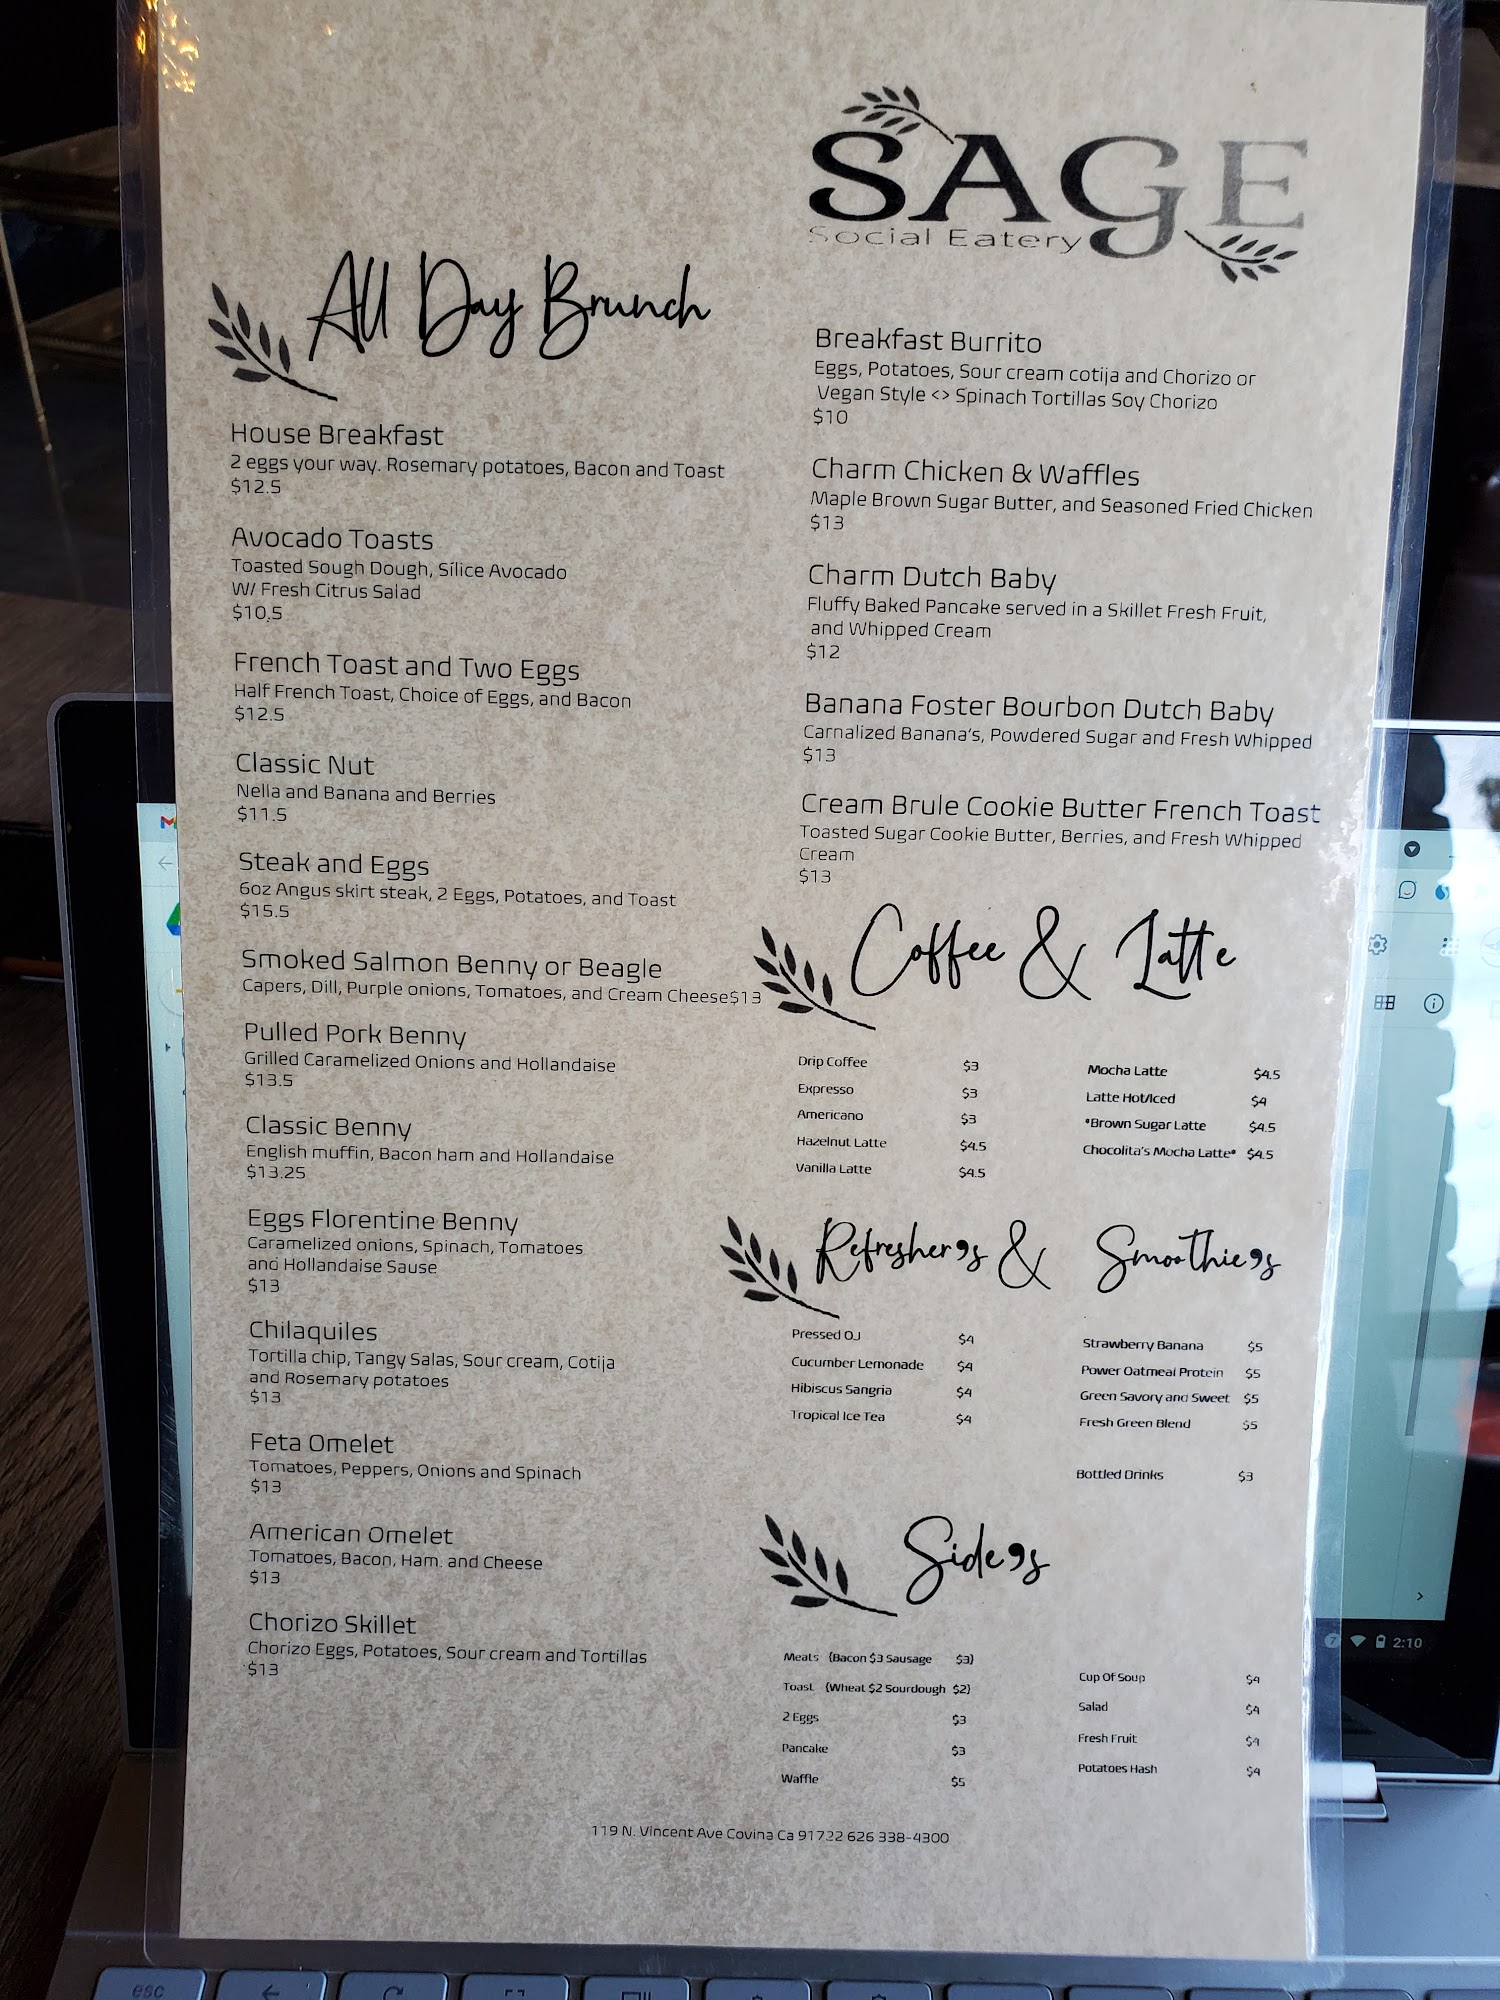 SAGE
Social Eatery
All Day Brunch
House Breakfast
2 eggs your way. Rosemary potatoes, Bacon and Toast
$12.5
Avocado Toasts
Toasted Sough Dough, Sílice Avocado
W/ Fresh Citrus Salad
$10.5
French Toast and Two Eggs
Half French Toast, Choice of Eggs, and Bacon
$12.5
Classic Nut
Nella and Banana and Berries
$11.5
Steak and Eggs
6oz Angus skirt steak, 2 Eggs, Potatoes, and Toast
$15.5
Smoked Salmon Benny or Beagle
Capers, Dill, Purple onions, Tomatoes, and Cream Cheese$13
Pulled Pork Benny
Grilled Caramelized Onions and Hollandaise
$13.5
Classic Benny
English muffin, Bacon ham and Hollandaise
$13.25
Eggs Florentine Benny
Caramelized onions, Spinach, Tomatoes
and Hollandaise Sause
$13
Chilaquiles
Tortilla chip, Tangy Salas, Sour cream, Cotija
and Rosemary potatoes
$13
Feta Omelet
Tomatoes, Peppers, Onions and Spinach
$13
American Omelet
Tomatoes, Bacon, Ham. and Cheese
$13
Chorizo Skillet
Chorizo Eggs, Potatoes, Sour cream and Tortillas
$13
Breakfast Burrito
Eggs, Potatoes, Sour cream cotija and Chorizo or
Vegan Style <> Spinach Tortillas Soy Chorizo
$10
Charm Chicken & Waffles
Maple Brown Sugar Butter, and Seasoned Fried Chicken
$13
Charm Dutch Baby
Fluffy Baked Pancake served in a Skillet Fresh Fruit,
and Whipped Cream
$12
Banana Foster Bourbon Dutch Baby
Carnalized Banana's, Powdered Sugar and Fresh Whipped
$13
Cream Brule Cookie Butter French Toast
Toasted Sugar Cookie Butter, Berries, and Fresh Whipped
Cream
$13
Coffee & Latte
Drip Coffee $3
Expresso $3
Americano $3
Hazelnut Latte $4.5
Vanilla Latte $4.5
Mocha Latte $4.5
Latte Hot/Iced $4
*Brown Sugar Latte $4.5
Chocolita's Mocha Latte* $4.5
Refresher's & Smoothie's
Pressed OJ $4
Cucumber Lemonade $4
Hibiscus Sangria $4
Tropical Ice Tea $4
Strawberry Banana $5
Power Oatmeal Protein $5
Green Savory and Sweet $5
Fresh Green Blend $5
Bottled Drinks $3
Side's
Meats (Bacon $3 Sausage $3)
Toast (Wheat $2 Sourdough $2)
2 Eggs $3
Pancake $3
Waffle $5
Cup Of Soup $4
Salad $4
Fresh Fruit $4
Potatoes Hash $4
119 N. Vincent Ave Covina Ca 91722 626 338-4300
2:10
esc